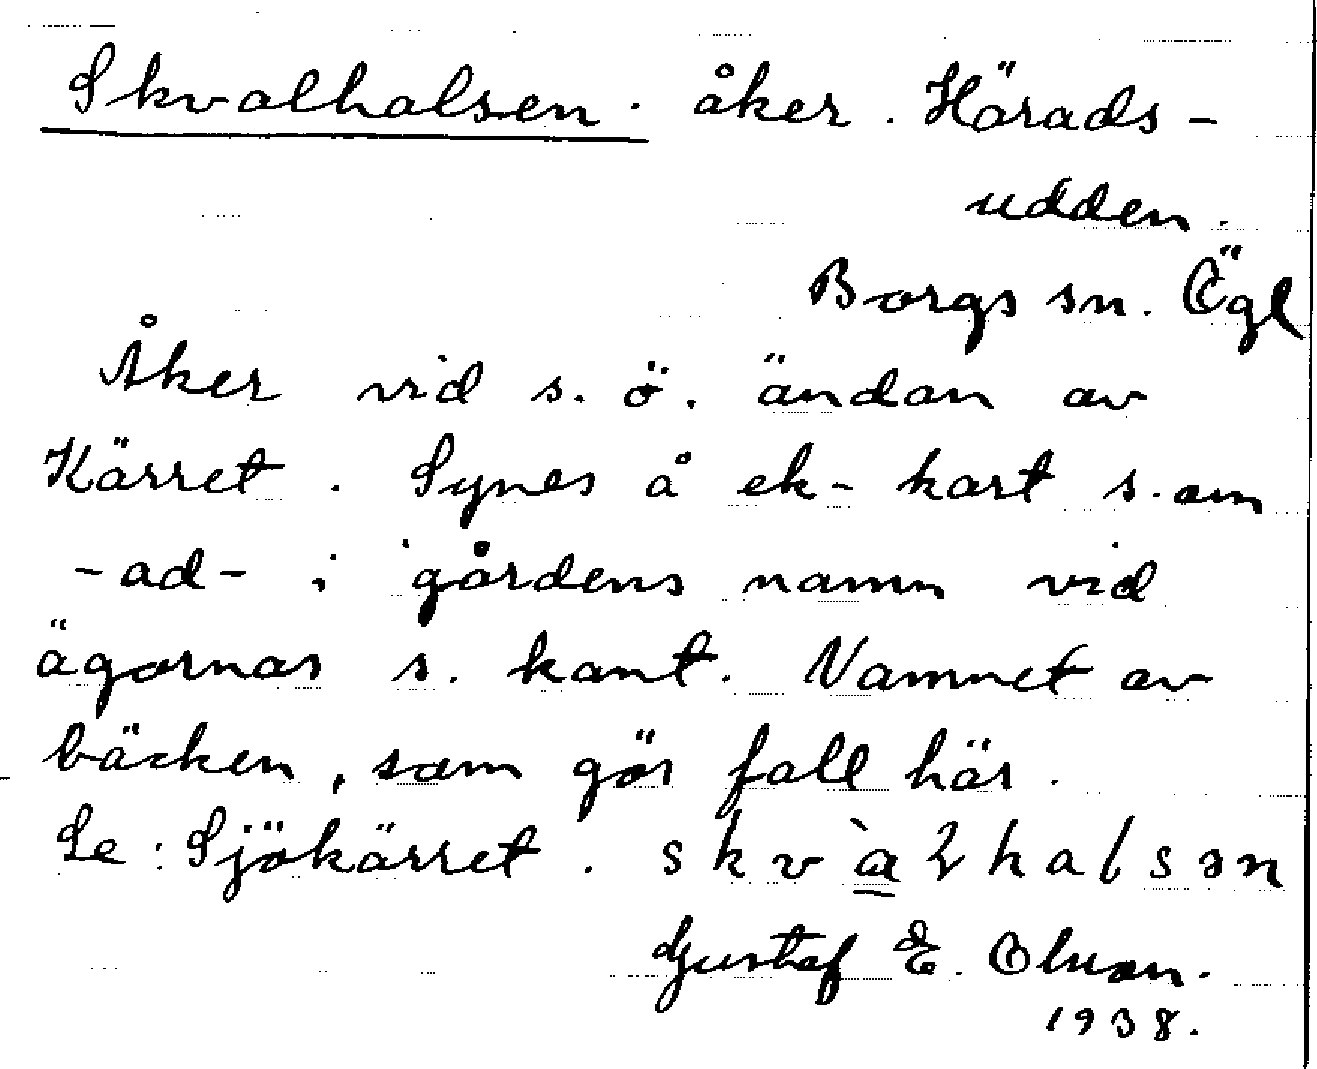 Skvalhalsen. åker. Härads-
udden.
Borgs sn. Ögl
Åker vid s. ö. ändan av
Kärret. Synes å ek-kart som
-ad- i gårdens namn vid
ägornas s. kant. Namnet av
bäcken, som gör fall här.
Se: Sjökärret. skvàɽhalsən
Gustaf E. Olsson.
1938.